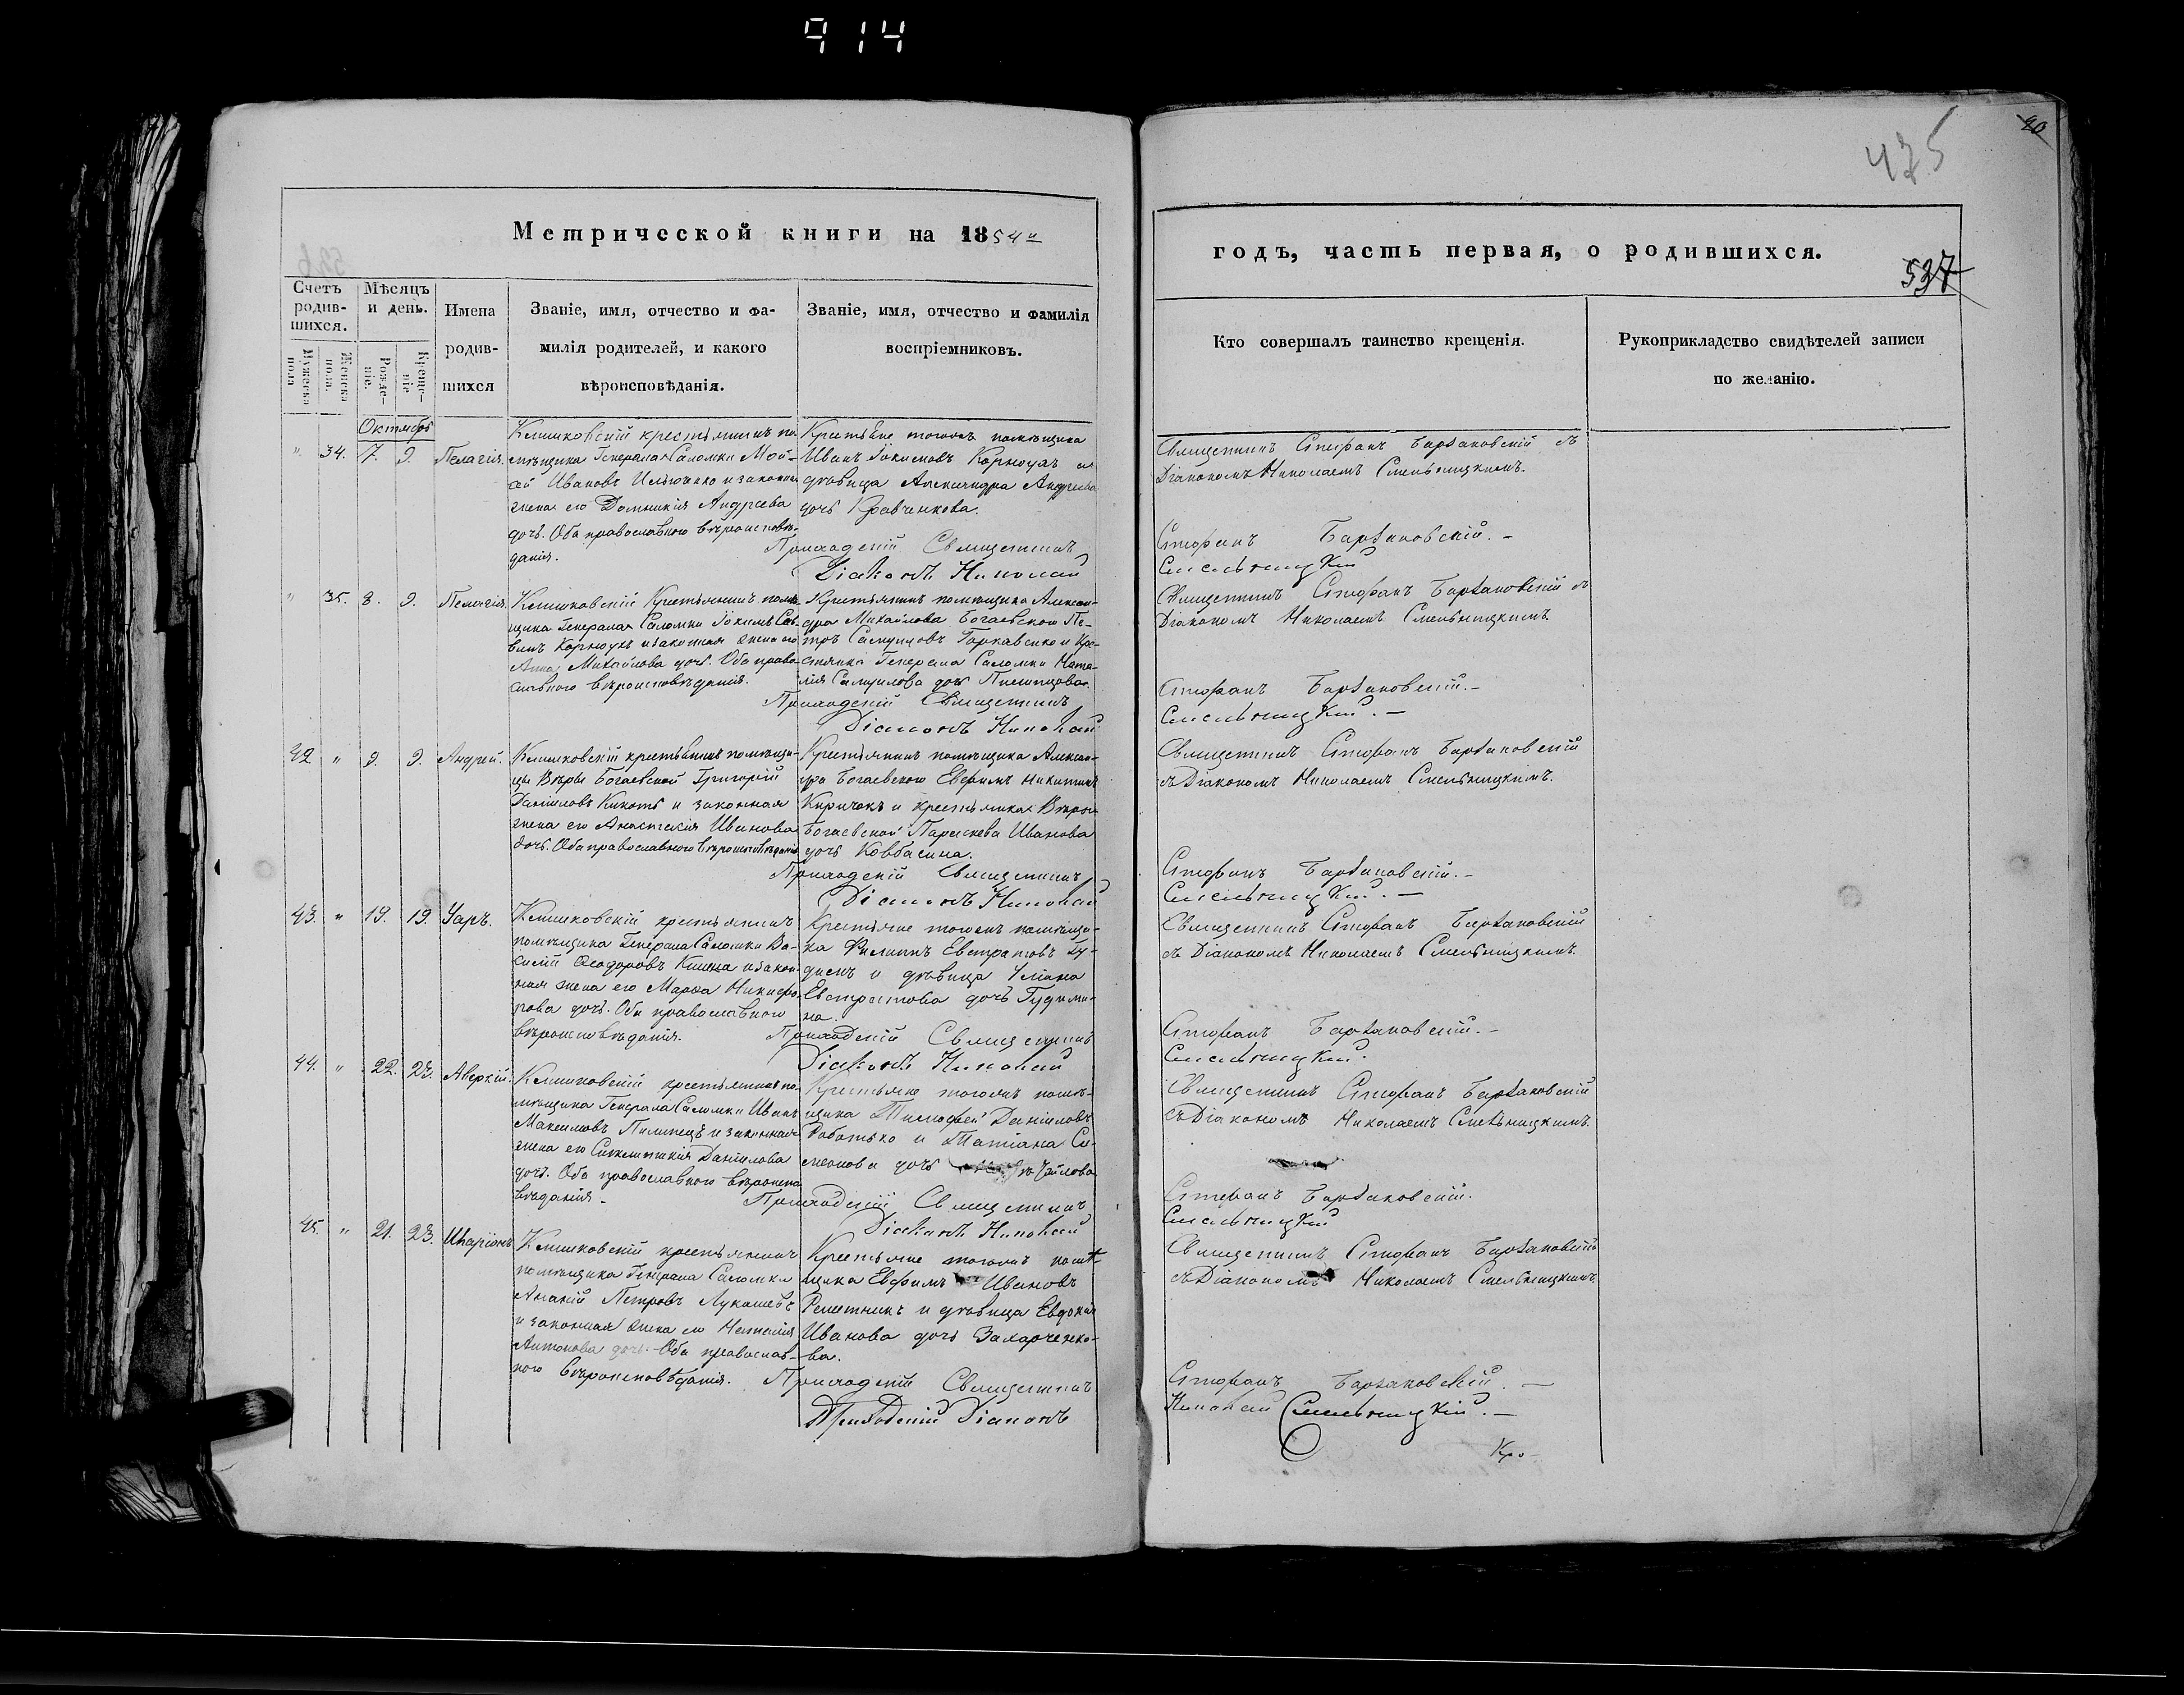 914
20
475
Метрической книги на 1854й
годъ, часть первая, о родившихся.
537
Счетъ родив-шихся.
Мужеска пола
Женска пола.
Мѣсяцъ и день.
Рожде-ніе.
Креще-ніе
Имена родив-шихся
Званіе, имя, отчество и фа-
милія родителей, и какого
вѣроисповѣданія.
Званіе, имя, отчество и фамилія
воспріемниковъ.
Кто совершалъ таинство крещенія.
Рукоприкладство свидѣтелей записи
по желанію.
Октябрь
" 34. 7. 9. Пелагія.
Климковскій крестьянинъ по-
мѣщика Генерала Саломки Мой-
сей Ивановъ Ильюченко и законная
жена его Домникія Андреева
дочь. Оба православного вѣроисповѣ-
данія.
Крестьяне тогожъ помѣщика
Иванъ Іокимовъ Корнюхъ и
дѣвица Александра Андреева
дочь Кравченкова.
Приходскій Священникъ
Діаконъ Николай
Священникъ Стефанъ Барзаковскій съ
Діакономъ Николаемъ Смельницкимъ.
Стефанъ Барзаковскій.-
Смельницкій
" 35. 8. 9. Пелагія.
Климковскій Крестьянинъ помѣ-
щика Генерала Саломки Іокимъ Сав-
винъ Корнюхъ и законная жена его
Анна Михайлова дочь. Оба право-
славного вѣроисповѣданія.
Крестьянинъ помѣщика Алексан-
дра Михайлова Богаевского Пе-
тръ Самуиловъ Горкавенко и Кре-
стянка Генерала Саломки Ната-
лія Самуилова дочь
Приходскій Священникъ
Діаконъ Николай
Священникъ Стефанъ Барзаковскій съ
Діакономъ Николаемъ Смельницкимъ.
Стефанъ Барзаковскій.-
Смельницкій.-
42 " 9. 9. Андрей.
Климковскій крестьянинъ помѣщи-
цы Вѣры Богаевской Григорій
Даніиловъ Кикоть и законная
жена его Анастасія Иванова
дочь. Оба православного вѣроисповѣданія
Крестьянинъ помѣщика Алексан-
дра Богаевского Евфимъ Никитинъ
Киричокъ и крестьянка Вѣры
Богаевской Параскева Иванова
дочь Ковбасина.
Приходскій Священникъ
Діаконъ Николай
Священникъ Стефанъ Барзаковскій
съ Діакономъ Николаемъ Смельницкимъ.
Стефанъ Барзаковскій.-
Смельницкій.-
43. " 19. 19. Уаръ.
Климковскій крестьянинъ
помѣщика Генерала Саломки Ва-
силій Ѳеодоровъ и закон-
ная жена его Марѳа Никифо-
рова дочь. Оба православного
вѣроисповѣданія.
Крестьяне тогожъ помѣщи-
ка Филипъ Евстратовъ Гу-
димъ и дѣвица Уліана
Евстратова дочь Гудими-
на.
Приходскій Священникъ
Діаконъ Николай
Священникъ Стефанъ Барзаковскій
съ Діакономъ Николаемъ Смельницкимъ.
Стефанъ Барзаковскій.-
Смельницкій.
44. " 22. 23. Аверкій.
Климковскій крестьянинъ по-
мѣщика Генерала Саломки Иванъ
Максимовъ Пилипецъ и законная
жена его Синклитикія Даніилова
дочь. Оба православного вѣроиспо-
вѣданія-
Крестьяне тогожъ помѣ-
щика Тимофей Даніиловъ
Работько и Татіана Си-
меонова дочь
Приходскій Священникъ
Діаконъ Николай
Священникъ Стефанъ Барзаковскій
съ Діакономъ Николаемъ Смельницкимъ.
Стефанъ Барзаковскій.
Смельницкій
45. " 21. 23. Иларіонъ
Климковскій крестьянинъ
помѣщика Генерала Саломки
Ананій Петровъ Лукашевъ
и законная жена его Наталія
Антонова дочь. Оба православ-
ного вѣроисповѣданія.
Крестьяне тогожъ помѣ-
щика Евфимъ Ивановъ
Решетникъ и дѣвица Евдокія
Иванова дочь Захарченко-
ва.
Приходскій Священникъ
Приходскій Діаконъ
Священникъ Стефанъ Барзаковскій
съ Діакономъ Николаемъ Смельницкимъ.
Стефанъ Барзаковскій.-
Николай Смельницкій.-
Кро-